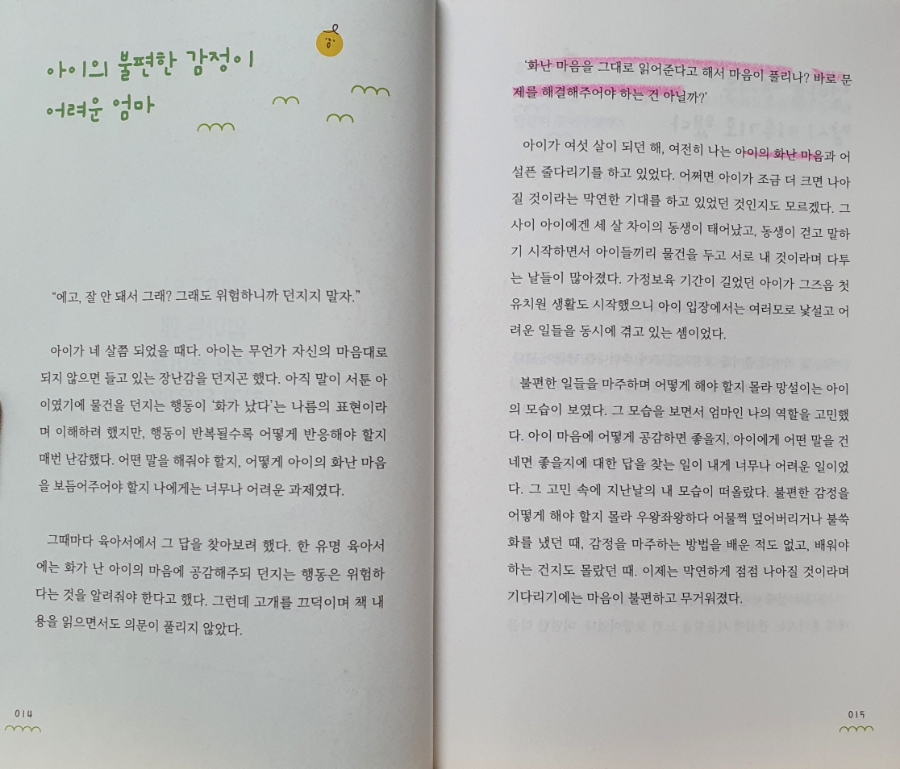 아이의 불편한 감정이
어려운 엄마
“에고, 잘 안 돼서 그래? 그래도 위험하니까 던지지 말자.”
아이가 네 살쯤 되었을 때다. 아이는 무언가 자신의 마음대로
되지 않으면 들고 있는 장난감을 던지곤 했다. 아직 말이 서툰 아
이였기에 물건을 던지는 행동이 ‘화가 났다’는 나름의 표현이라
며 이해하려 했지만, 행동이 반복될수록 어떻게 반응해야 할지
매번 난감했다. 어떤 말을 해줘야 할지, 어떻게 아이의 화난 마음
을 보듬어주어야 할지 나에게는 너무나 어려운 과제였다.
그때마다 육아서에서 그 답을 찾아보려 했다. 한 유명 육아서
에는 화가 난 아이의 마음에 공감해주되 던지는 행동은 위험하
다는 것을 알려줘야 한다고 했다. 그런데 고개를 끄덕이며 책 내
용을 읽으면서도 의문이 풀리지 않았다.
014
‘화난 마음을 그대로 읽어준다고 해서 마음이 풀리나? 바로 문
제를 해결해주어야 하는 건 아닐까?’
아이가 여섯 살이 되던 해, 여전히 나는 아이의 화난 마음과 어
설픈 줄다리기를 하고 있었다. 어쩌면 아이가 조금 더 크면 나아
질 것이라는 막연한 기대를 하고 있었던 것인지도 모르겠다. 그
사이 아이에겐 세 살 차이의 동생이 태어났고, 동생이 걷고 말하
기 시작하면서 아이들끼리 물건을 두고 서로 내 것이라며 다투
는 날들이 많아졌다. 가정보육 기간이 길었던 아이가 그즈음 첫
유치원 생활도 시작했으니 아이 입장에서는 여러모로 낯설고 어
려운 일들을 동시에 겪고 있는 셈이었다.
불편한 일들을 마주하며 어떻게 해야 할지 몰라 망설이는 아이
의 모습이 보였다. 그 모습을 보면서 엄마인 나의 역할을 고민했
다. 아이 마음에 어떻게 공감하면 좋을지, 아이에게 어떤 말을 건
네면 좋을지에 대한 답을 찾는 일이 내게 너무나 어려운 일이었
다. 그 고민 속에 지난날의 내 모습이 떠올랐다. 불편한 감정을
어떻게 해야 할지 몰라 우왕좌왕하다 어물쩍 덮어버리거나 불쑥
화를 냈던 때, 감정을 마주하는 방법을 배운 적도 없고, 배워야
하는 건지도 몰랐던 때. 이제는 막연하게 점점 나아질 것이라며
기다리기에는 마음이 불편하고 무거워졌다.
015